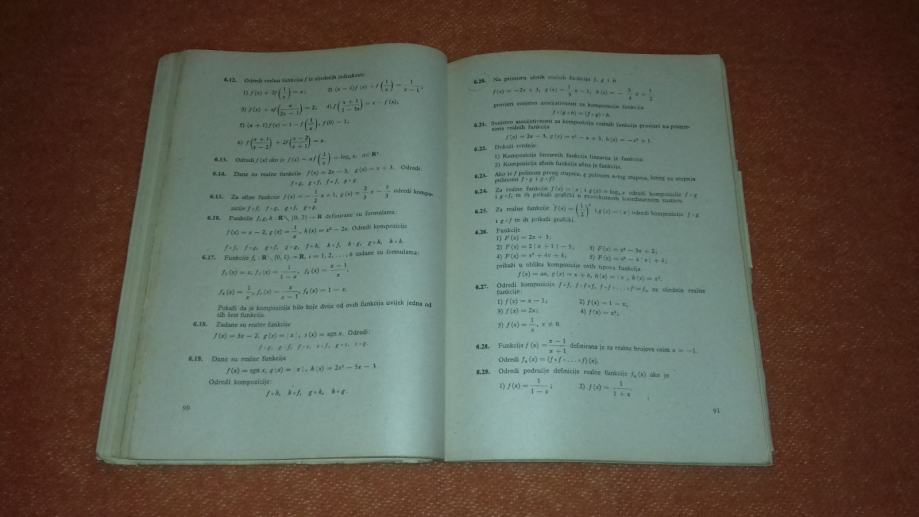 6.12. Odredi realnu funkciju f iz sljedećih jednakosti:
1) f(x) + 2f(1/x) = x; 2) (x − 1) f(x) + f(1/x) = 1/(x − 1);
3) f(x) + xf(x/(2x − 1)) = 2; 4) f((x + 1)/(1 − 3x)) = x − f(x),
5) (x + 1) f(x) = 1 − f(1/x), f(0) = 1;
6) f((x + 1)/(x − 2)) + 2f((x − 2)/(x + 1)) = x.
6.13. Odredi f(x) ako je
6.14. Dane su realne funkcije f(x) = 2x − 3, g(x) = x + 3. Odredi
f∘g, g∘f, f∘f, g∘g
6.15. Za afine funkcije f(x) = − 1/2 x + 1, g(x) = 2/3 x − 1/3 odredi kompo-
zicije f∘f, f∘g, g∘f, g∘g.
6.16. Funkcije f, g, h : R \ {0, 2} → R definirane su formulama:
f(x) = x − 2, g(x) = 1/x, h(x) = x² − 2x. Odredi kompozicije
f∘f, f∘g, g∘f, g∘g, f∘h, h∘f, h∘g, g∘h, h∘h.
6.17. Funkcije fᵢ : R \ {0, 1} → R, i = 1, 2, . . . , 6 zadane su formulama:
f₁(x) = x, f₂(x) = 1/(1 − x), f₃(x) = (x − 1)/x;
f₄(x) = 1/x, f₅(x) = x/(x − 1), f₆(x) = 1 − x.
Pokaži da je kompozicija bilo koje dvije od ovih funkcija uvijek jedna od
tih šest funkcija.
6.18. Zadane su realne funkcije
f(x) = 3x − 2, g(x) = | x |, s(x) = sgn x. Odredi:
6.19. Dane su realne funkcije
f(x) = sgn x, g(x) = | x |, h(x) = 2x² − 5x − 3.
Odredi kompozicije:
f∘h, h∘f, g∘h, h∘g.
90
6.20. Na primjeru afinih realnih funkcija f, g i h
f(x) = −2x + 3, g(x) = 1/3 x − 1, h(x) = − 3/4 x + 1/2
provjeri svojstvo asocijativnosti za kompoziciju funkcija
f∘(g∘h) = (f∘g)∘h.
6.21. Svojstvo asocijativnosti za kompoziciju realnih funkcija provjeri na primje-
realnih funkcija
f(x) = 2x − 3, g(x) = x² − x + 3, h(x) = −x² + 1.
6.22. Dokaži tvrdnje:
1) Kompozicija linearnih funkcija linearna je funkcija.
2) Kompozicija afinih funkcija afina je funkcija.
6.23. Ako je f polinom prvog stupnja, g polinom n-tog stupnja, kojeg su stupnja
polinomi f∘g i g∘f?
6.24. Za realne funkcije f(x) = | x | i g(x) = log₂ x odredi kompozicije f∘g
i g∘f, te ih prikaži grafički u pravokutnom koordinatnom sustavu.
6.25. Za realne funkcije f(x) = (1/2)ˣ i g(x) = | x | odredi kompozicije f∘g
i g∘f te ih prikaži grafički.
6.26. Funkcije
1) F(x) = 2x + 3;
2) F(x) = 2 | x + 1 | − 5; 3) F(x) = x² − 3x + 2;
4) F(x) = x² + 4x + 4; 5) F(x) = x² − 4 | x | + 4;
prikaži u obliku kompozicije ovih tipova funkcija
f(x) = ax, g(x) = x + b, h(x) = | x |, k(x) = x².
6.27. Odredi kompozicije f∘f, f∘f∘f, f∘f∘ . . . ∘f = fₙ za sljedeće realne
funkcije:
1) f(x) = x − 1; 2) f(x) = 1 − x;
3) f(x) = 2x; 4) f(x) = x²;
5) f(x) = 1/x, x ≠ 0.
6.28. Funkcija f(x) = (x − 1)/(x + 1) definirana je za realne brojeve osim x = −1.
Odredi fₙ(x) = (f∘f∘ . . . ∘f)(x).
6.29. Odredi područje definicije realne funkcije fₙ(x) ako je
1) f(x) = 1/(1 − x); 2) f(x) = 1/(1 + x).
91